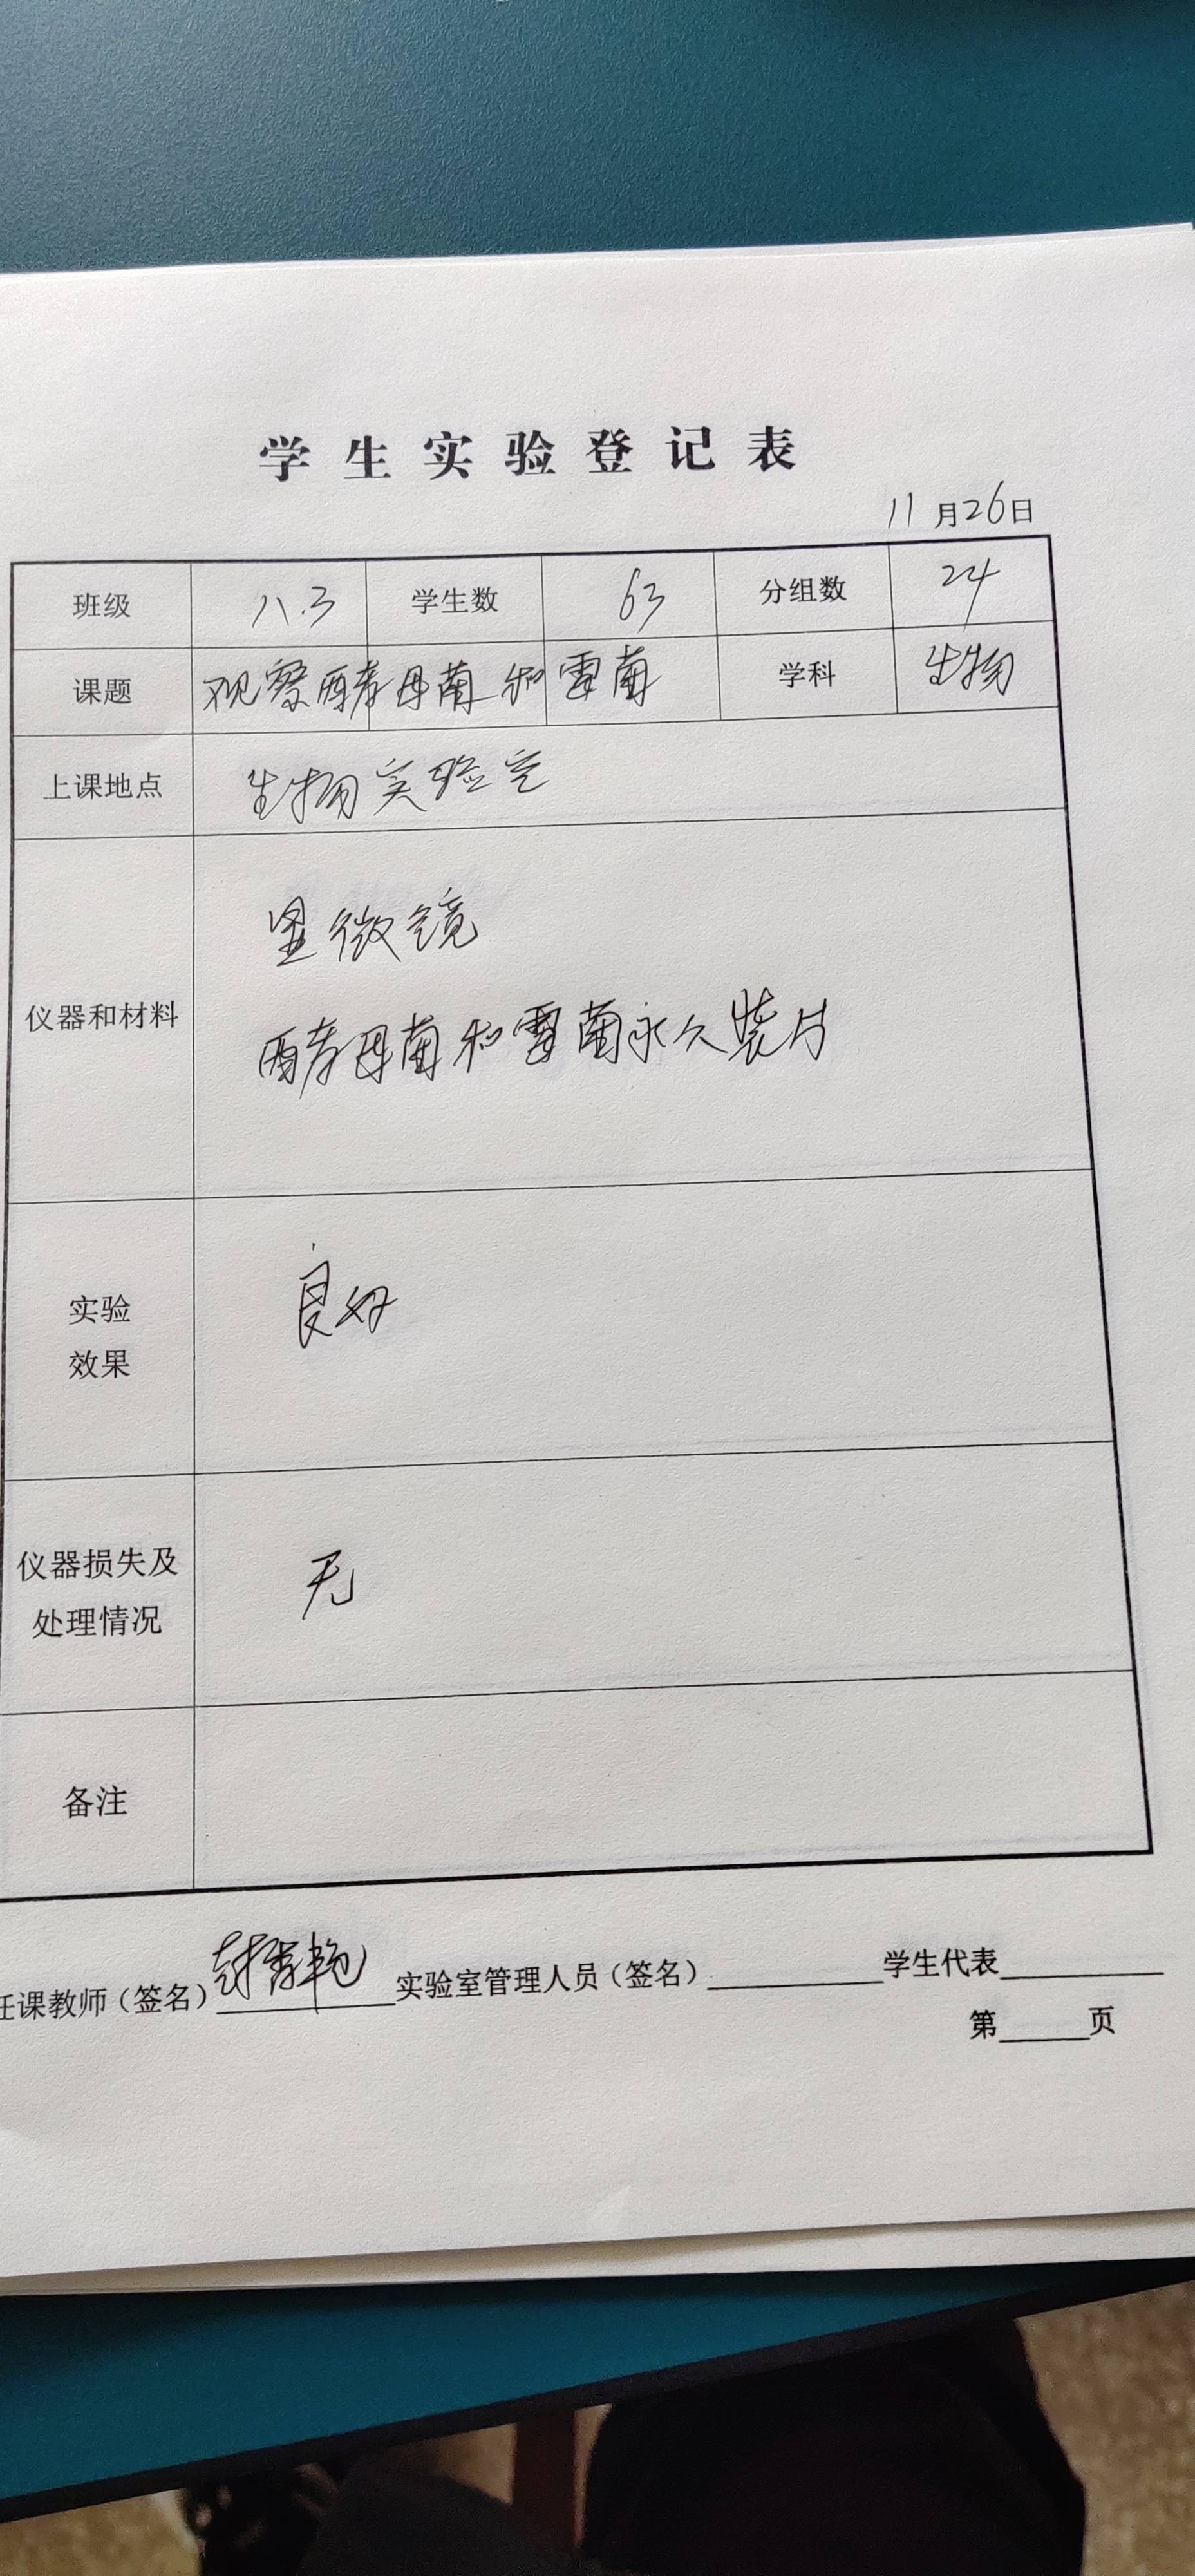 学生实验登记表
11月26日
班级 八.3 学生数 63 分组数 24
课题 观察酵母菌和霉菌 学科 生物
上课地点 生物实验室
仪器和材料 显微镜
酵母菌和霉菌永久装片
实验
效果 良好
仪器损失及
处理情况 无
备注
任课教师（签名） 实验室管理人员（签名） 学生代表
第 页